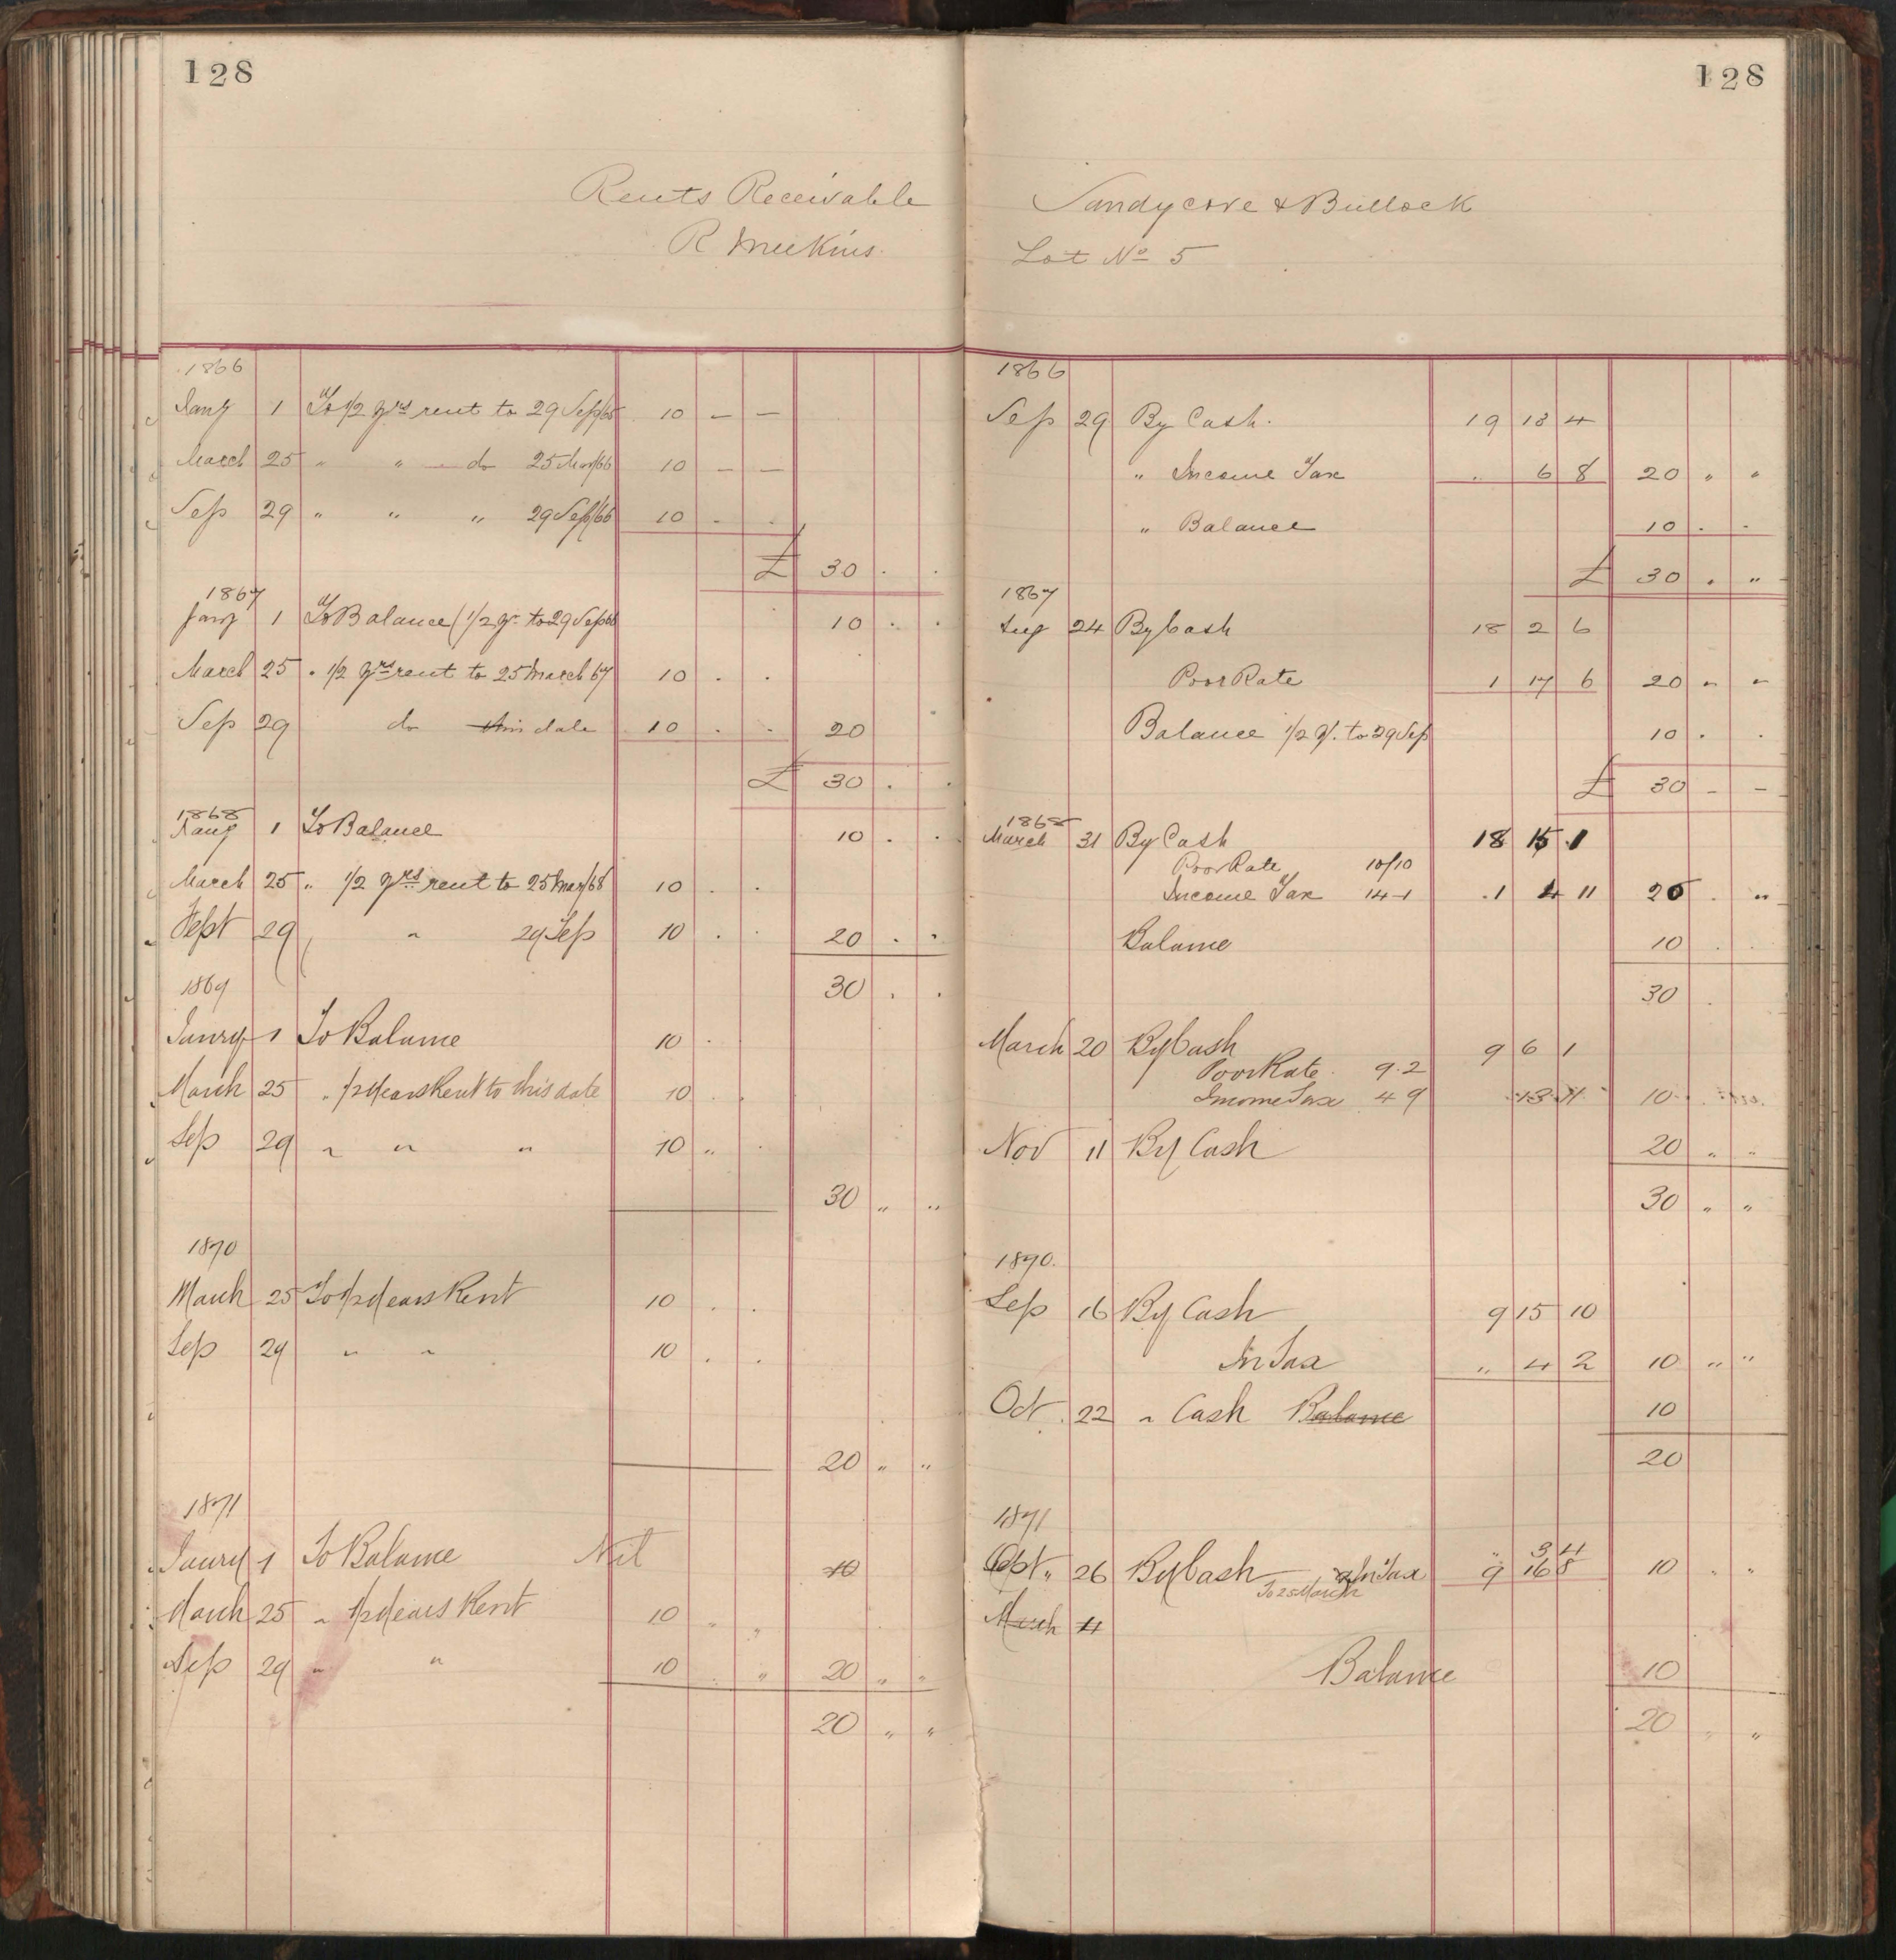 128
Rents Receivable
R Meekins
1866
Jany 1 To 1/2 yrs rent to 29 Sep/65 10 – –
March 25 " " do 25 Mar/66 10 – –
Sep 29 " " " 29 Sep/66 10 . .
£ 30 . .
1867
Jany 1 To Balance (1/2 yr to 29 Sep 66 10 . .
March 25 " 1/2 yrs rent to 25 March 67 10 . .
Sep 29 do this date 10 . . 20
£ 30 . .
1868
Jany 1 To Balance 10 . .
March 25 " 1/2 yrs rent to 25 Mar/68 10 . .
Sept 29 " 29 Sep 10 . . 20 . .
1869 30 . .
Janry 1 To Balance 10 .
March 25 " 1/2 Years Rent to this date 10 . .
Sep 29 " " " 10 " .
30 " "
1870
March 25 To 1/2 Years Rent 10 . .
Sep 29 " " 10 . .
20 " "
1871
Janry 1 To Balance Nil 10
March 25 " 1/2 Years Rent 10 " "
Sep 29 " " 10 . " 20 " "
20 " "
128
Sandycove & Bullock
Lot No 5
1866
Sep 29 By Cash. 19 13 4
" Income Tax .. 6 8 20 " "
" Balance 10 . .
£ 30 . "
1867
Aug 24 By Cash 18 2 6
Poor Rate 1 17 6 20 " "
Balance 1/2 yr. to 29 Sep 10 . .
£ 30 – –
1868
March 31 By Cash 18 15 1
Poor Rate 10/10
Income Tax 14 1 . 1 4 11 20 . "
Balance 10 . .
30 .
March 20 By Cash 9 6 1
Poor Rate. 9.2
Income Tax 4 9 13 11 10
Nov 11 By Cash 20 " "
30 " "
1870.
Sep 16 By Cash 9 15 10
In Tax " 4 2 10 " "
Oct. 22 " Cash Balance 10
20
1871
" 3 4
Sept " 26 By Cash & In Tax 9 16 8 10 . .
To 25 March
March 11
Balance 10
20 " "